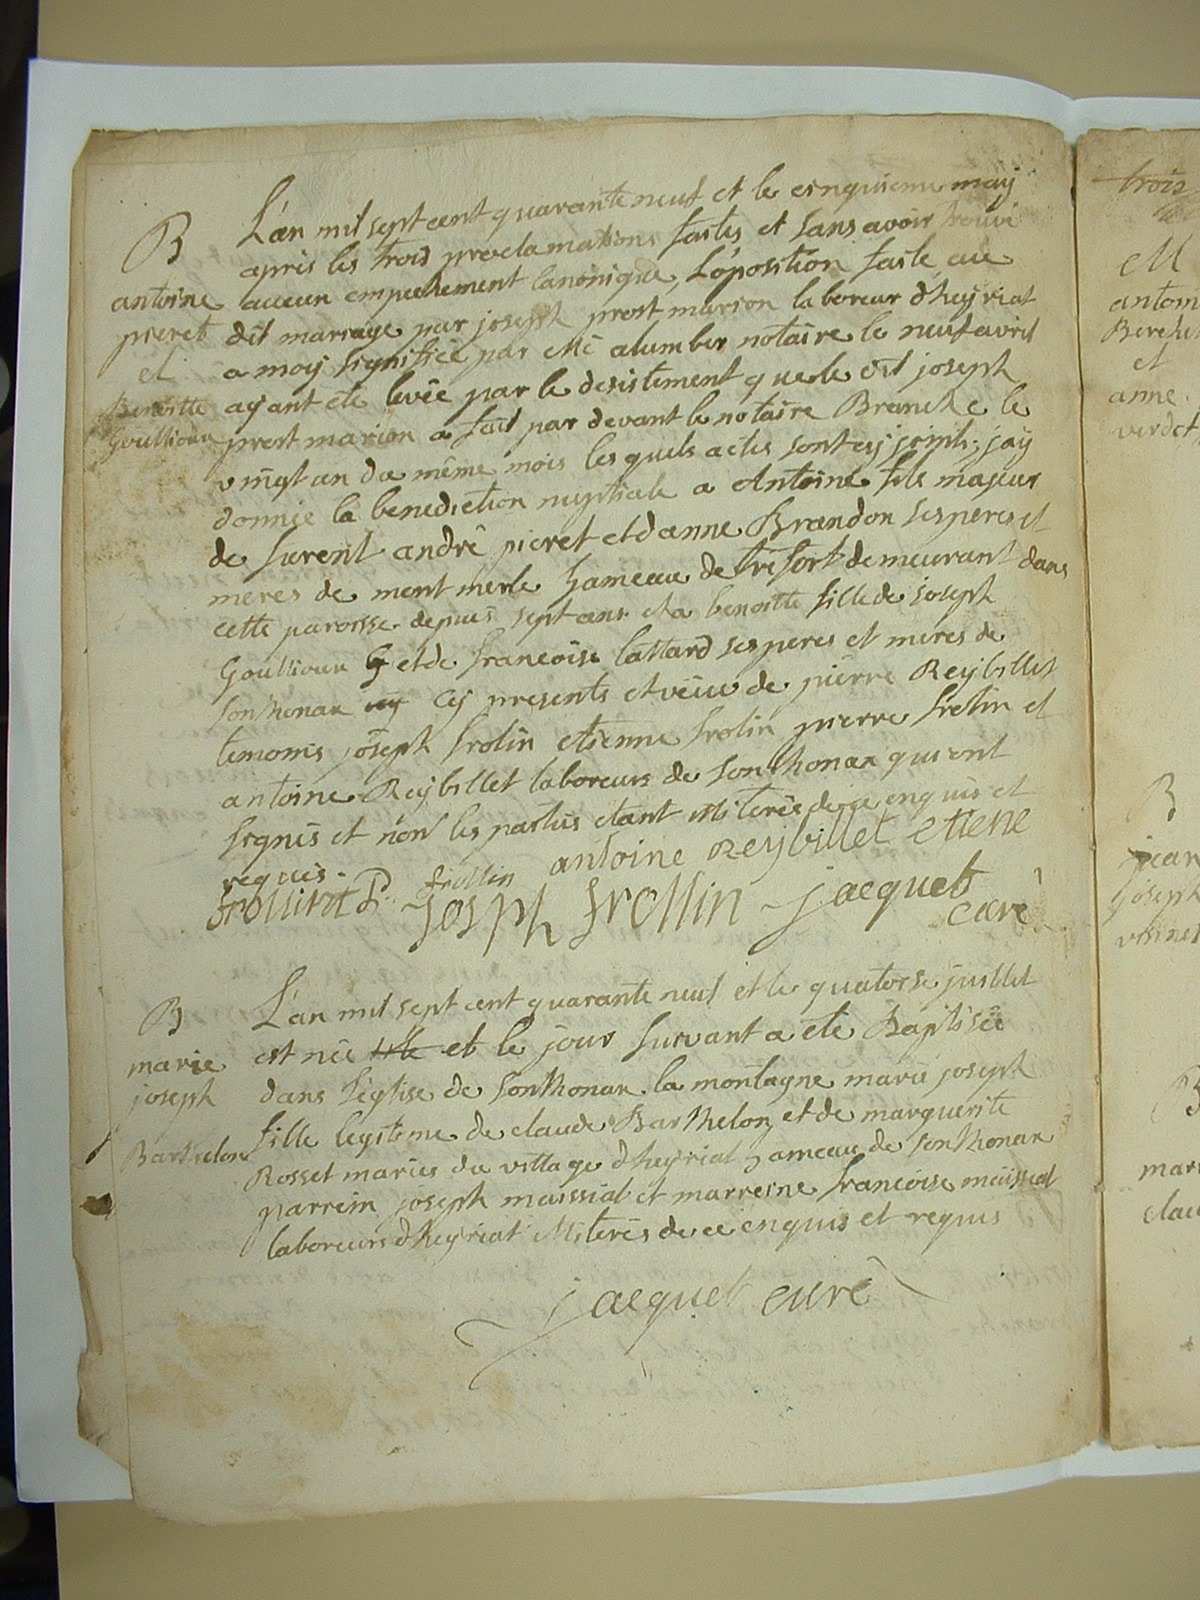 B
antoine
pieret
et
Benoitte
Goullioux
L'an mil sept cent quarante neuf et le cinquieme may
apris les trois proclamations faites et sans avoir trouvé
aucun empechement canonique, L'oposition faite au
dit mariage par joseph prost marion laboreur d'heyriat
a moy signifiée par Me alumber notaire le neuf avril
ayant ete levée par le desistement que le dit joseph
prost marion a fait par devant le notaire Branche le
vingt un du même mois les quels actes sont cy joints; j'ay
donnée la benediction nuptiale a Antoine fils majeur
de furent andré pieret et d'anne Brandon ses peres et
meres de mont merle hameau de tresfort demeurant dans
cette paroisse depuis sept ans et a benoitte fille de joseph
Goullioux et de francoise lattard ses peres et meres de
sonthonax cy presents et veue de pierre Reybillet
temoins joseph frolin etienne frolin pierre frolin et
antoine Reybillet laboreurs de sonthonax qui ont
signés et non les parties etant illiterés de ce enquis et
requis.
antoine Reybillet etiene
frollin frollint P. joseph frollin jacquet
curé
B
marie
joseph
Barthelon
L'an mil sept cent quarante neuf et le quatorse juillet
est née et le jour suivant a ete Baptisée
dans l'église de sonthonax la montagne marie joseph
fille legiteme de claude Barthelon et de marguerite
Rosset mariés du village d'heyriat hameau de sonthonax
parrein joseph maissiat et marreine francoise maissiat
laboreurs d'heyriat illiterés de ce enquis et requis
jacquet curé
trois
M
antoin
et
anne
verdet
B
jean
joseph
B
mari
clau